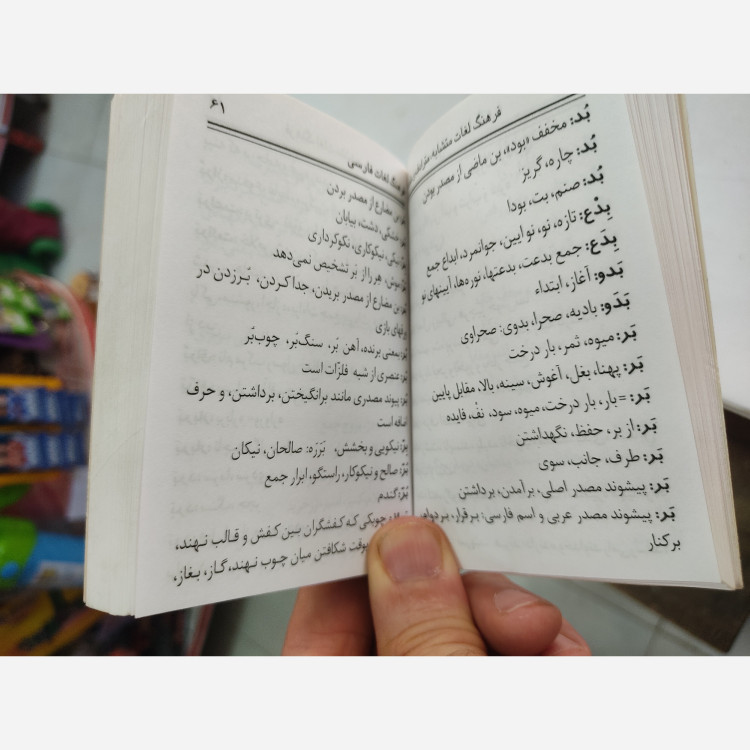 فرهنگ لغات متشابه
بُد: مخفف «بود»، بن ماضی از مصدر بودن
بُد: چاره، گریز
بُد: صنم، بت، بودا
بِدْع: تازه، نو، نوآیین، جوانمرد، ابداع جمع
بِدَع: جمع بدعت، بدعتها، نوره‌ها، آیینهای نو
بَدو: آغاز، ابتداء
بَدَو: بادیه، صحرا، بدوی: صحراوی
بَر: میوه، ثمر، بار درخت
بَر: پهنا، بغل، آغوش، سینه، بالا، مقابل پایین
بَر: =بار، بار درخت، میوه، سود، نفْ، فایده
بَر: از بر، حفظ، نگهداشتن
بَر: طرف، جانب، سوی
بَر: پیشوند مصدر اصلی، برآمدن، برداشتن
بَر: پیشوند مصدر عربی و اسم فارسی: برقرار،
برکنار
فرهنگ لغات فارسی
۴۱
بن مضارع از مصدر بردن
خشکی، دشت، بیابان
نیکی، نیکوکاری، نکوکرداری
موش، هِر را از بَر تشخیص نمی‌دهد
بن مضارع از مصدر بریدن، جدا کردن، بُرزدن در
بازی
بُر: بمعنی برنده، آهن بُر، سنگ‌بُر، چوب‌بُر
بُر: عنصری از شبه فلزّات است
بَر: پیوند مصدری مانند برانگیختن، برداشتن، و حرف
اضافه است
بِرّ: نیکویی و بخشش، بَرَرَه: صالحان، نیکان
بَرّ: صالح و نیکوکار، راستگو، ابرار جمع
بُرّ: گندم
چوبکی که کفشگران بین کفش و قالب نهند،
بوقت شکافتن میان چوب نهند، گاز، بغاز،